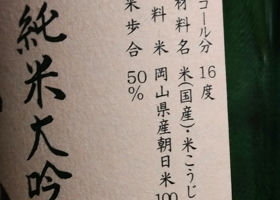 コール分 16度
材料名 米(国産)・米こうじ
料米 岡山県産朝日米100
米歩合 50%
純米大吟